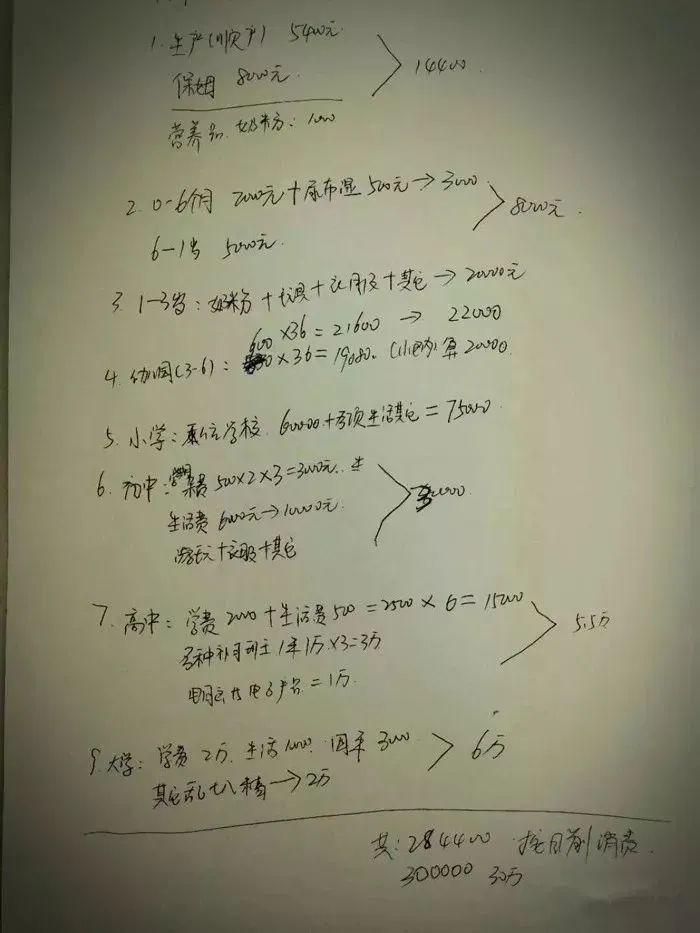 1. 生产(顺产) 5400元
保姆 8000元. 14400.
营养品. 奶粉: 1000
2. 0-6个月 2000元+尿布湿 500元→3000
6-1岁 5000元. 8000元.
3. 1-3岁: 奶粉+玩具+衣服+其它→20000元
600×36=21600 → 22000
4. 幼园(3-6): ×36=19080. 算20000.
5. 小学: 学校. 60000+各项生活其它=75000.
6. 初中: 学费 500×2×3=3000元.. 生
生活费 6000元→10000元. 000.
游玩+衣服+其它
7. 高中: 学费 2000+生活费 500=2500×6=15000
各种补习班 1年1万×3=3万 5.5万
电子产品=1万.
9. 大学: 学费 2万. 生活 1000. 3000 6万
其它乱七八糟→2万
共: 284400 按目前消费.
300000 30万